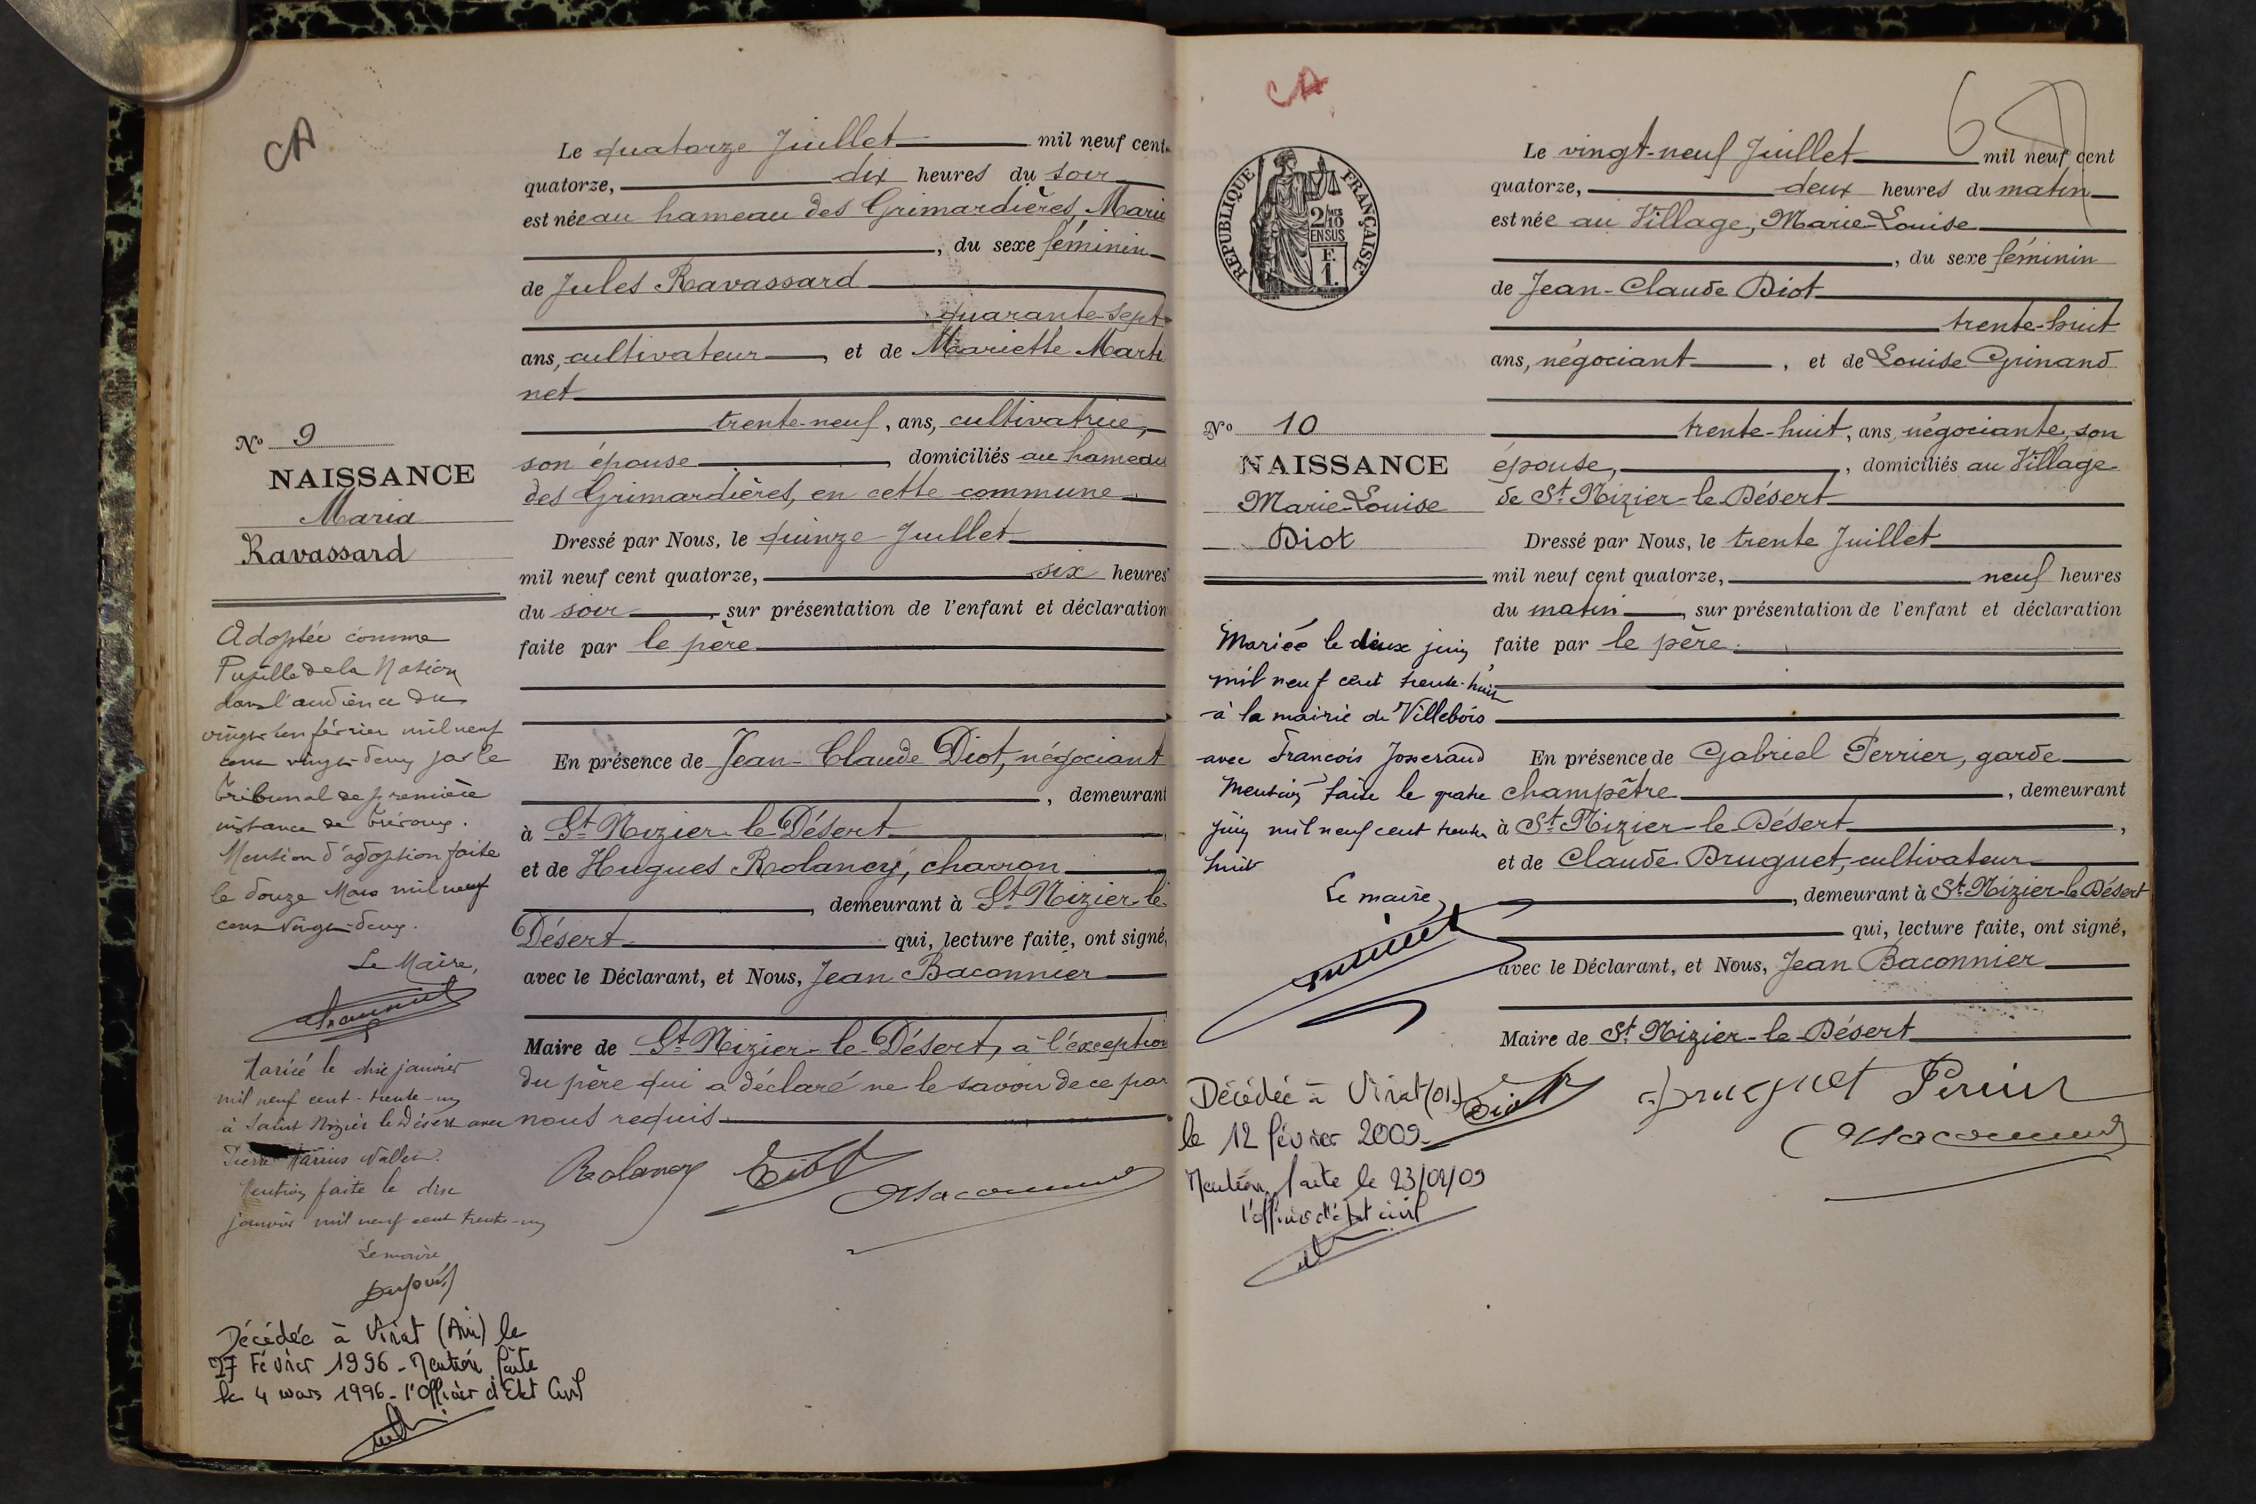 CA
Le quatorze Juillet mil neuf cent
quatorze, dix heures du soir
est née au hameau des Grimardières, Maria
, du sexe féminin
de Jules Ravassard
quarante-sept
ans, cultivateur, et de Mariette Marti
net
trente-neuf, ans, cultivatrice,
son épouse, domiciliés au hameau
des Grimardières, en cette commune.
Dressé par Nous, le quinze Juillet
mil neuf cent quatorze, six heures
du soir, sur présentation de l'enfant et déclaration
faite par le père
En présence de Jean-Claude Diot, négociant
, demeurant
à St Nizier-le-Désert,
et de Hugues Rolancy, charron
, demeurant à St Nizier-le-
Désert qui, lecture faite, ont signé,
avec le Déclarant, et Nous, Jean Baconnier
Maire de St Nizier-le-Désert, à l'exception
du père qui a déclaré ne le savoir de ce par
nous requis
Rolancy Diot Baconnier
No 9
NAISSANCE
Maria
Ravassard
Adoptée comme
Pupille de la Nation
dans l'audience du
vingt un février mil neuf
cent vingt-deux par le
tribunal de première
instance de Trévoux.
Mention d'adoption faite
le douze Mars mil neuf
cent vingt-deux.
Le Maire,
Mariée le dix janvier
mil neuf cent-trente-un
à Saint Nizier le Désert avec
Pierre Marius
Mention faite le dix
janvier mil neuf cent trente-un
Le maire
Décédée à Viriat (Ain) le
27 Février 1996 - Mention faite
le 4 mars 1996 - l'Officier d'Etat Civil
CA
6
RÉPUBLIQUE FRANÇAISE
2/10
EN SUS
F.
1.
Le vingt-neuf Juillet mil neuf cent
quatorze, deux heures du matin
est née au Village, Marie-Louise
, du sexe féminin
de Jean-Claude Diot
trente-huit
ans, négociant, et de Louise Grinand
trente-huit, ans, négociante, son
épouse, domiciliés au Village
de St Nizier-le-Désert
Dressé par Nous, le trente Juillet
mil neuf cent quatorze, neuf heures
du matin, sur présentation de l'enfant et déclaration
faite par le père.
En présence de Gabriel Perrier, garde
champêtre, demeurant
à St Nizier-le-Désert,
et de Claude Druguet, cultivateur
, demeurant à St Nizier-le-Désert
qui, lecture faite, ont signé,
avec le Déclarant, et Nous, Jean Baconnier
Maire de St Nizier-le-Désert
Diot Druguet Perrier
Baconnier
No 10
NAISSANCE
Marie-Louise
Diot
Mariée le deux juin
mil neuf cent trente-huit
à la mairie de Villebois
avec François Josserand
Mention faite le quatre
juin mil neuf cent trente
huit
Le maire,
Décédée à Viriat (01)
le 12 février 2009
Mention faite le 23/02/09
l'officier d'état civil